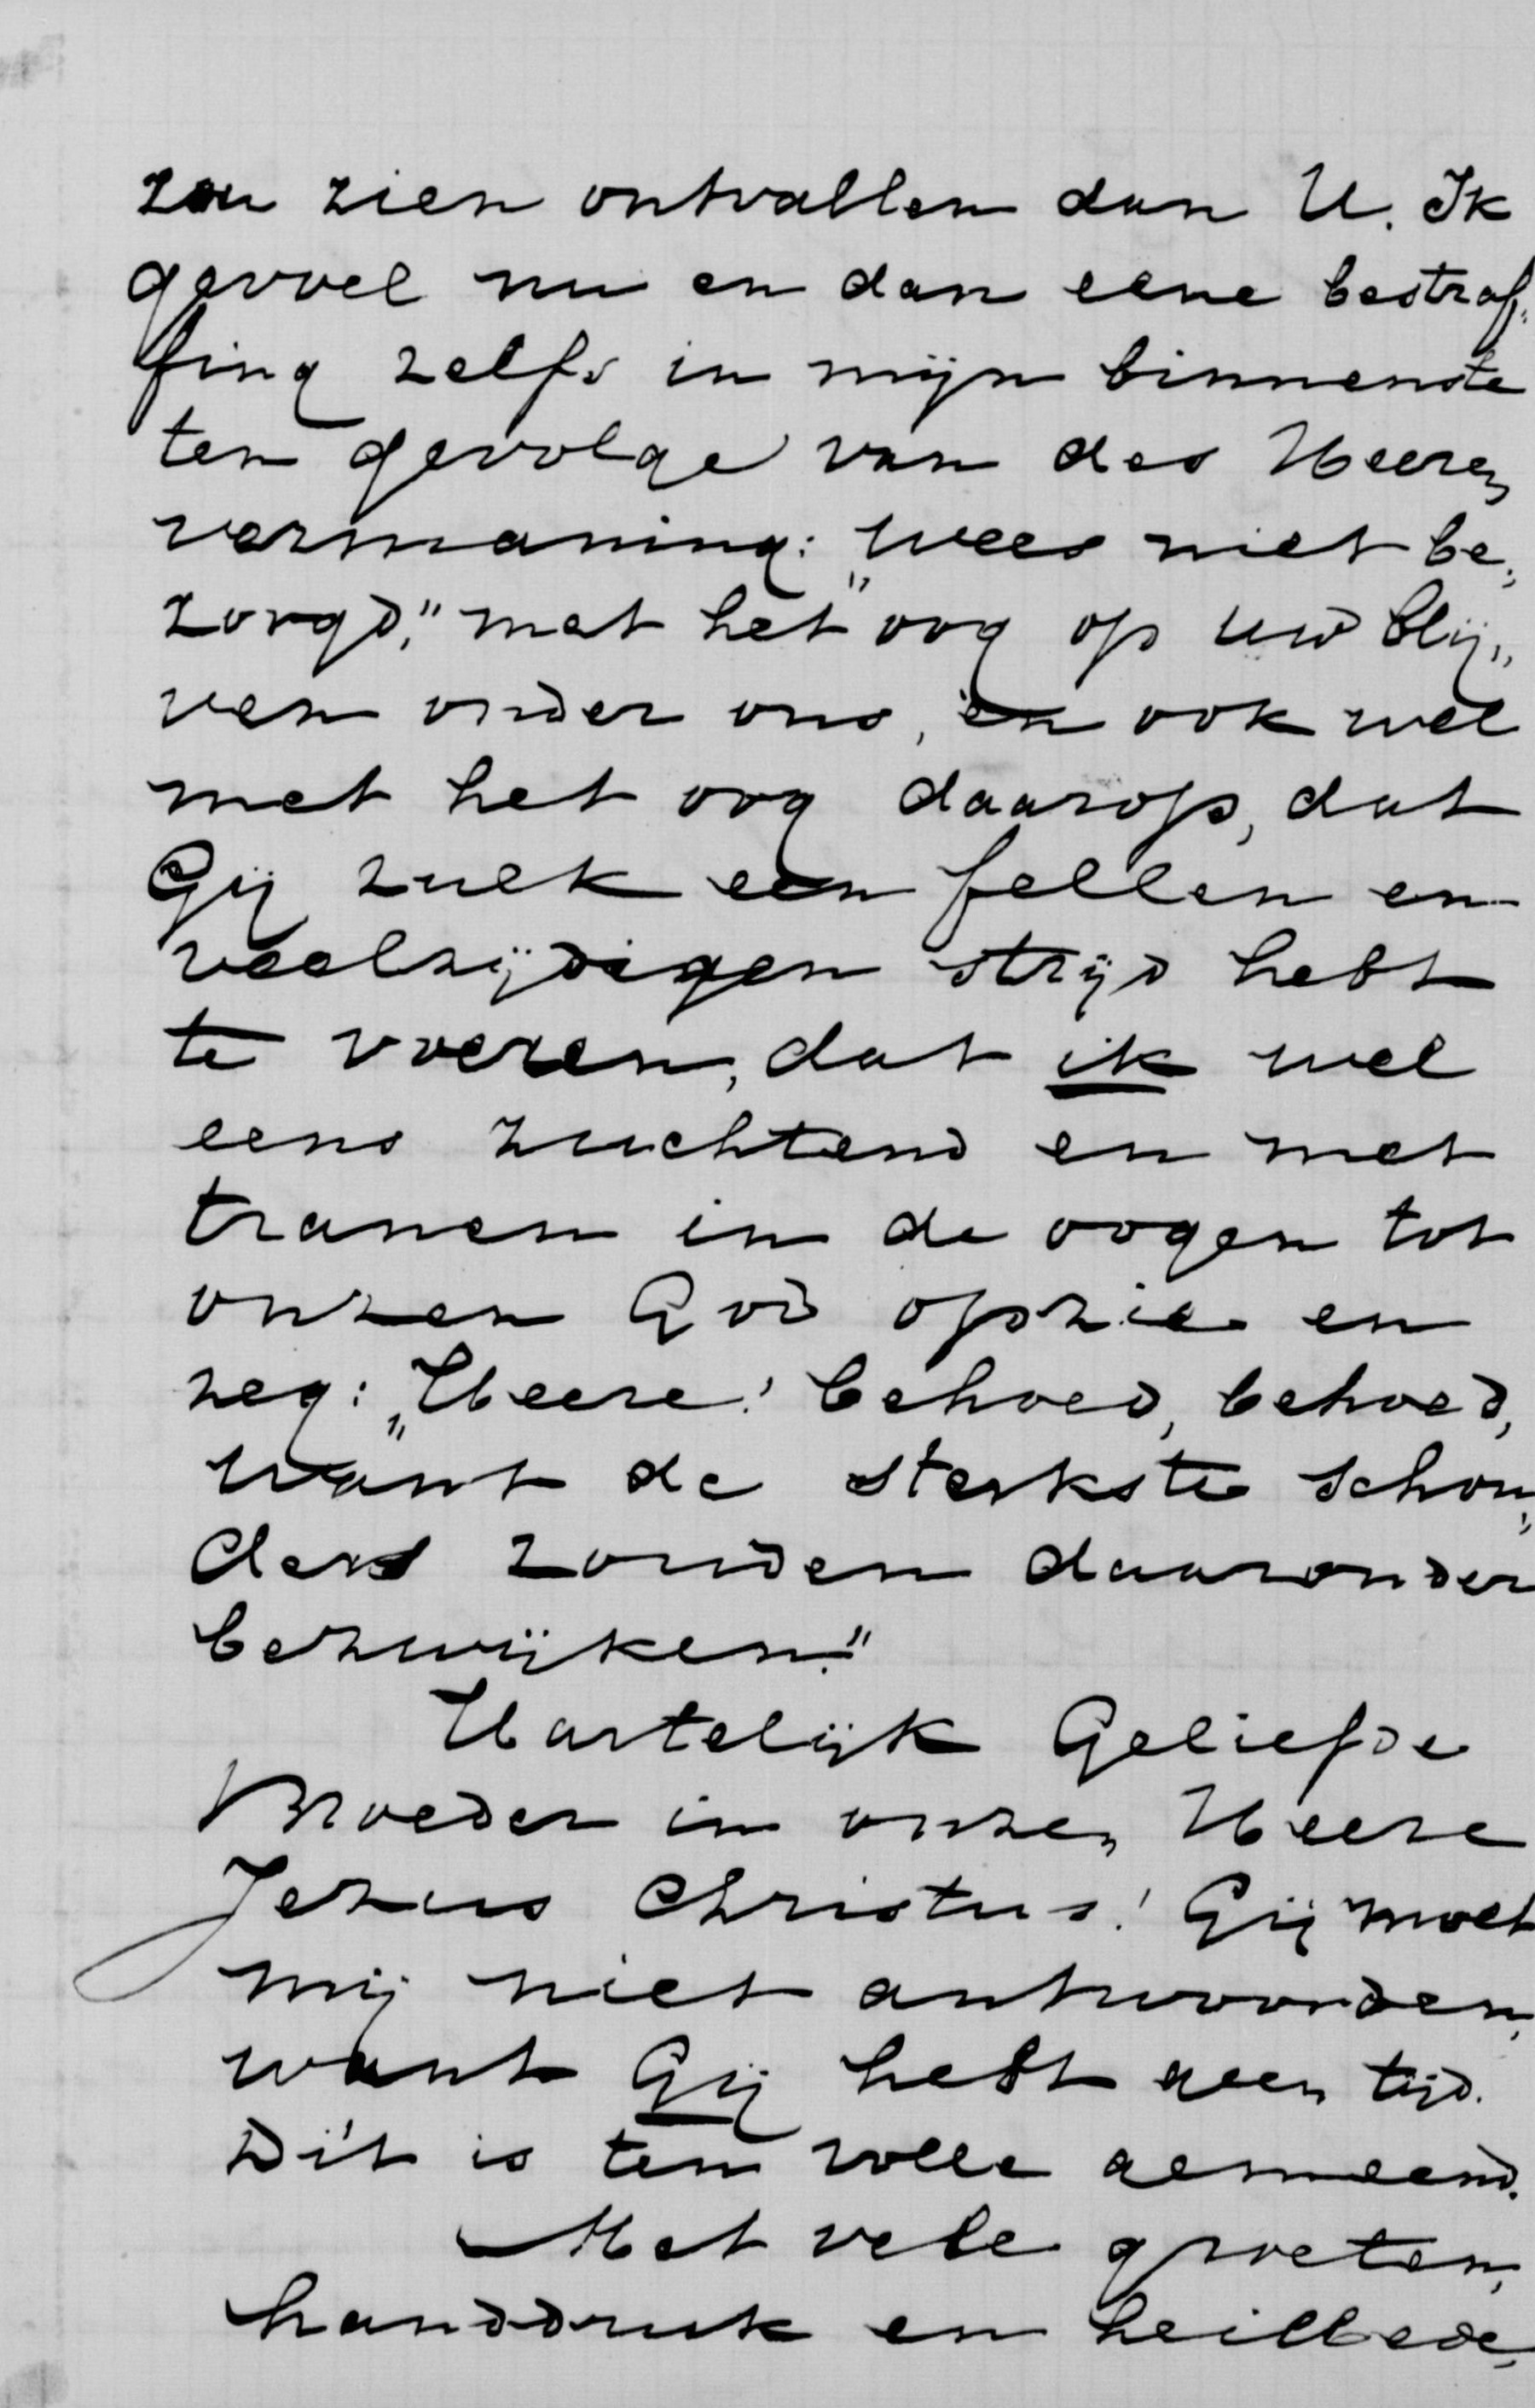 zou zien ontvallen dan U. Ik
gevoel nu en dan eene bestraf„
fing zelfs in mijn binnenste
ten gevolge van des Heeren
vermaning: „Wees niet be„
zorgd," met het oog op uw blij„
ven onder ons, en ook wel
met het oog daarop, dat
Gij zulk een fellen en
veelzijdigen strijd hebt
te voeren, dat ik wel
eens zuchtend en met
tranen in de oogen tot
onzen God opzie en
zeg: „Heere! behoed, behoed,
want de sterkste schou„
ders zouden daaronder
bezwijken."
Hartelijk Geliefde
Broeder in onzen Heere
Jezus Christus! Gij moet
mij niet antwoorden,
want Gij hebt geen tijd.
Dit is ten volle gemeend.
Met vele groeten,
handdruk en heilbede,